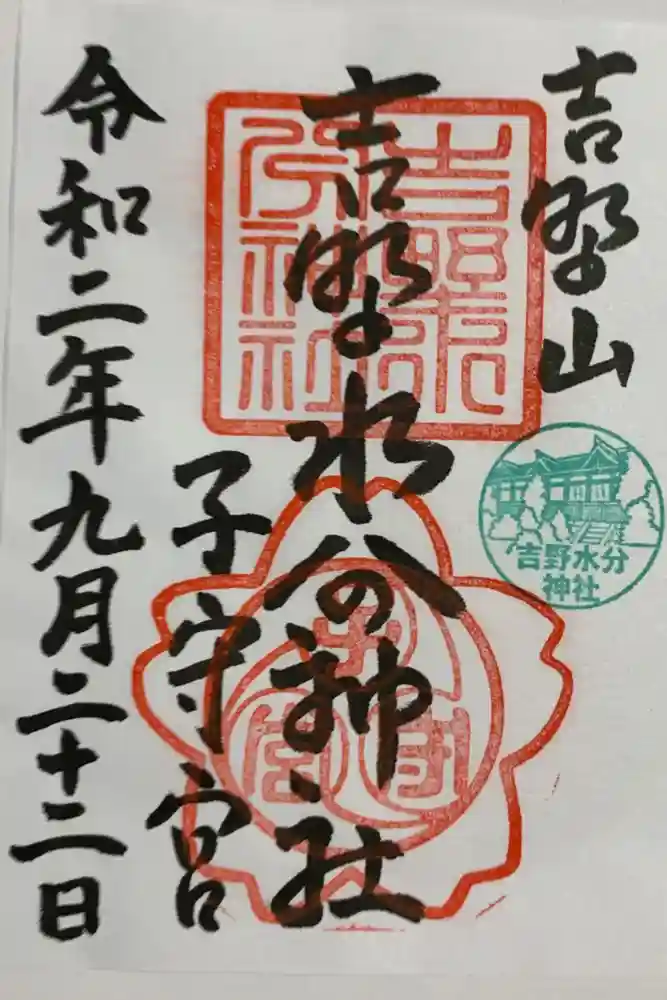 吉野山
吉野水分神社
子守宮
令和二年九月二十二日
吉野水分
神社
吉野水
分神社
子守宮